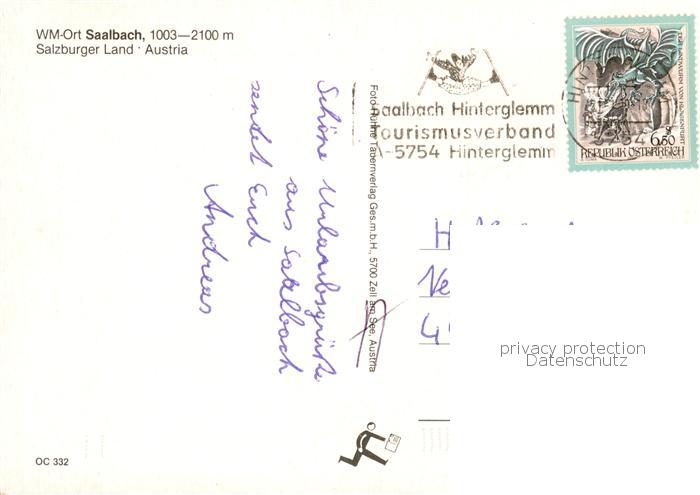 WM-Ort Saalbach, 1003—2100 m
Salzburger Land · Austria
Schöne Urlaubsgrüße
aus Saalbach
sendet Euch
Andreas
Foto-Ruhne Tauernverlag Ges.m.b.H., 5700 Zell am See, Austria
Saalbach Hinterglemm
Tourismusverband
A-5754 Hinterglemm
DER LINDWURM VON KLAGENFURT
S
6,50
REPUBLIK ÖSTERREICH
5754
H
Ve
privacy protection
Datenschutz
OC 332